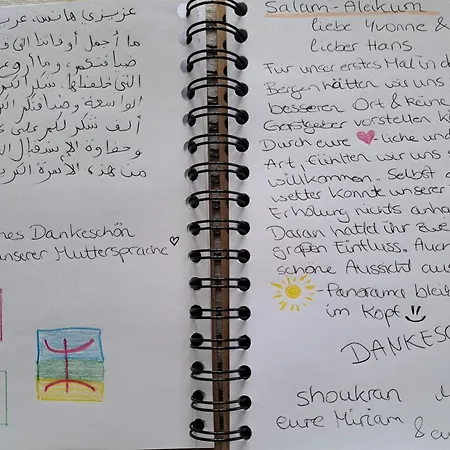 عزيزي هانس، عز
ما أجمل أوقاتنا التي ق
ضيافتكم، وما أروع
التي خلفتها. شكرا لكر
الواسعة وضيافتكم الكر
ألف شكر لكم على
وحفاوة الإستقبال
من هذه الأسرة الكر
nes Dankeschön
unserer Muttersprache
Salam-Aleikum
liebe Yvonne &
lieber Hans
Für unser erstes Mal in d
Bergen hätten wir uns
besseren Ort & keine
Gastgeber vorstellen k
Durch eure -liche und
Art, fühlten wir uns
willkommen. Selbst d
wetter konnte unserer
Erholung nichts anha
Daran hattet ihr zwe
großen Einfluss. Auch
schöne Aussicht aus
-Panorama bleib
im Kopf
DANKESC
shoukran
eure Miriam
& eu